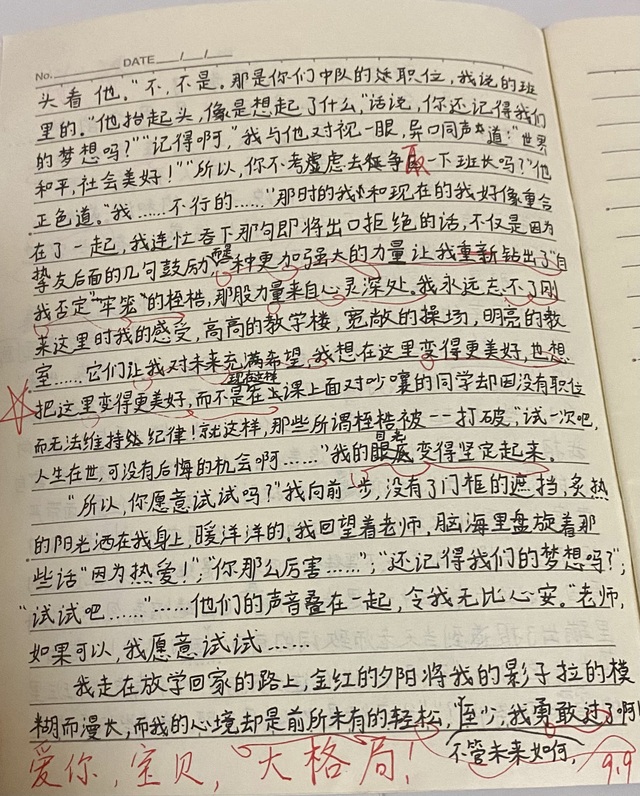 No. DATE / /
头看他。"不,不是。那是你们中队的
职位,我说的班
里的。"他抬起头,像是想起了什么,"话说,你还记得我们
的梦想吗?""记得啊,"我与他对视一眼,异口同声道:"世界
和平,社会美好!""所以,你不考虑去争取一下班长吗?"他
正色道。"我……不行的……"那时的我和现在的我好像重合
在了一起,我连忙吞下那句即将出口拒绝的话,不仅是因为
挚友后面的几句鼓励,种更加强大的力量让我重新钻出了"自
我否定"牢笼"的桎梏,那股力量来自心灵深处,我永远忘不了刚
来这里时我的感受,高高的教学楼,宽敞的操场,明亮的教
室……它们让我对未来充满希望,我想在这里变得更美好,也想
把这里变得更美好,而不是在上课上面对吵嚷的同学却因没有职位
而无法维持处纪律!就这样,那些所谓桎梏被一一打破,"试一次吧,
人生在世,可没有后悔的机会啊……"我的眼底变得坚定起来。
"所以,你愿意试试吗?"我向前一步,没有了门框的遮挡,炙热
的阳光洒在我身上,暖洋洋的,我回望着老师,脑海里盘旋着那
些话"因为热爱!";"你那么厉害……";"还记得我们的梦想吗?";
"试试吧……"……他们的声音叠在一起,令我无比心安。"老师,
如果可以,我愿意试试……
我走在放学回家的路上,金红的夕阳将我的影子拉的模
糊而漫长,而我的心境却是前所未有的轻松,至少,我勇敢过了啊!
不管未来如何,
爱你,宝贝,大格局!
9.9